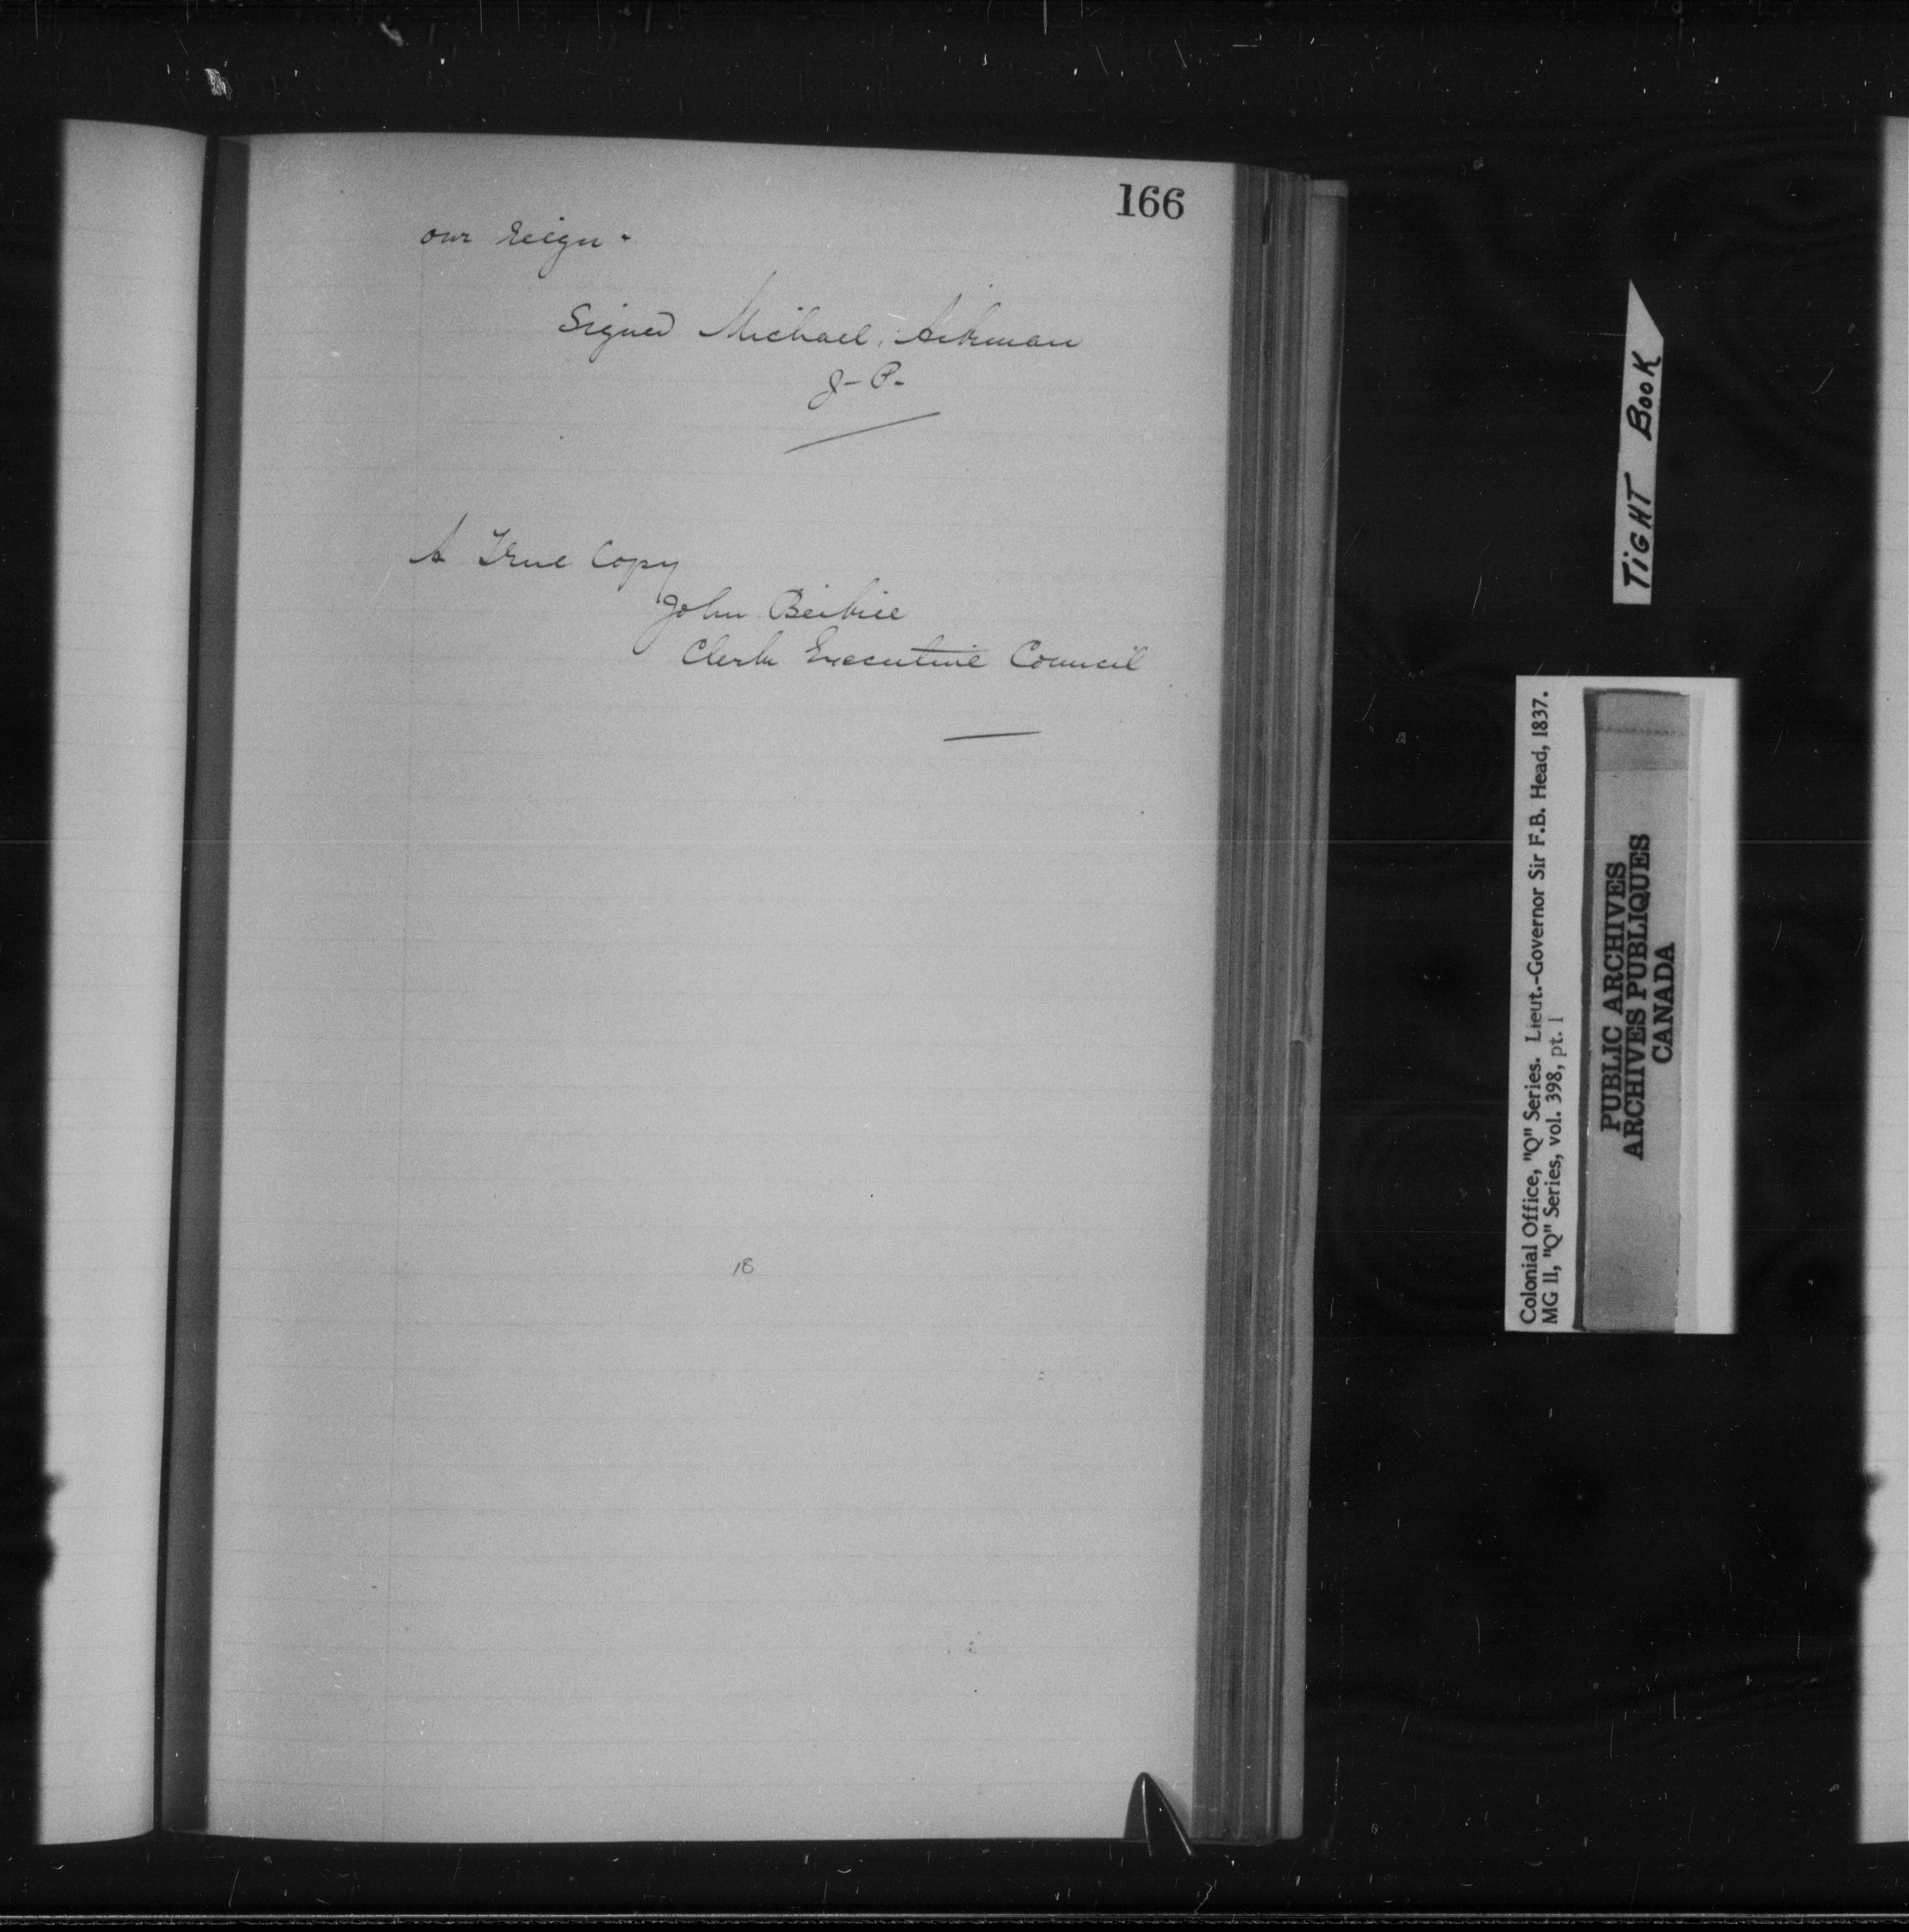 166
our reign -
Signed Michael Aikman
J- P.
A True Copy
John Beikie
Clerk Executive Council
18
TIGHT BOOK
Colonial Office, "Q" Series. Lieut.-Governor Sir F.B. Head, 1837.
MG 11, "Q" Series, vol. 398, pt. 1
PUBLIC ARCHIVES
ARCHIVES PUBLIQUES
CANADA